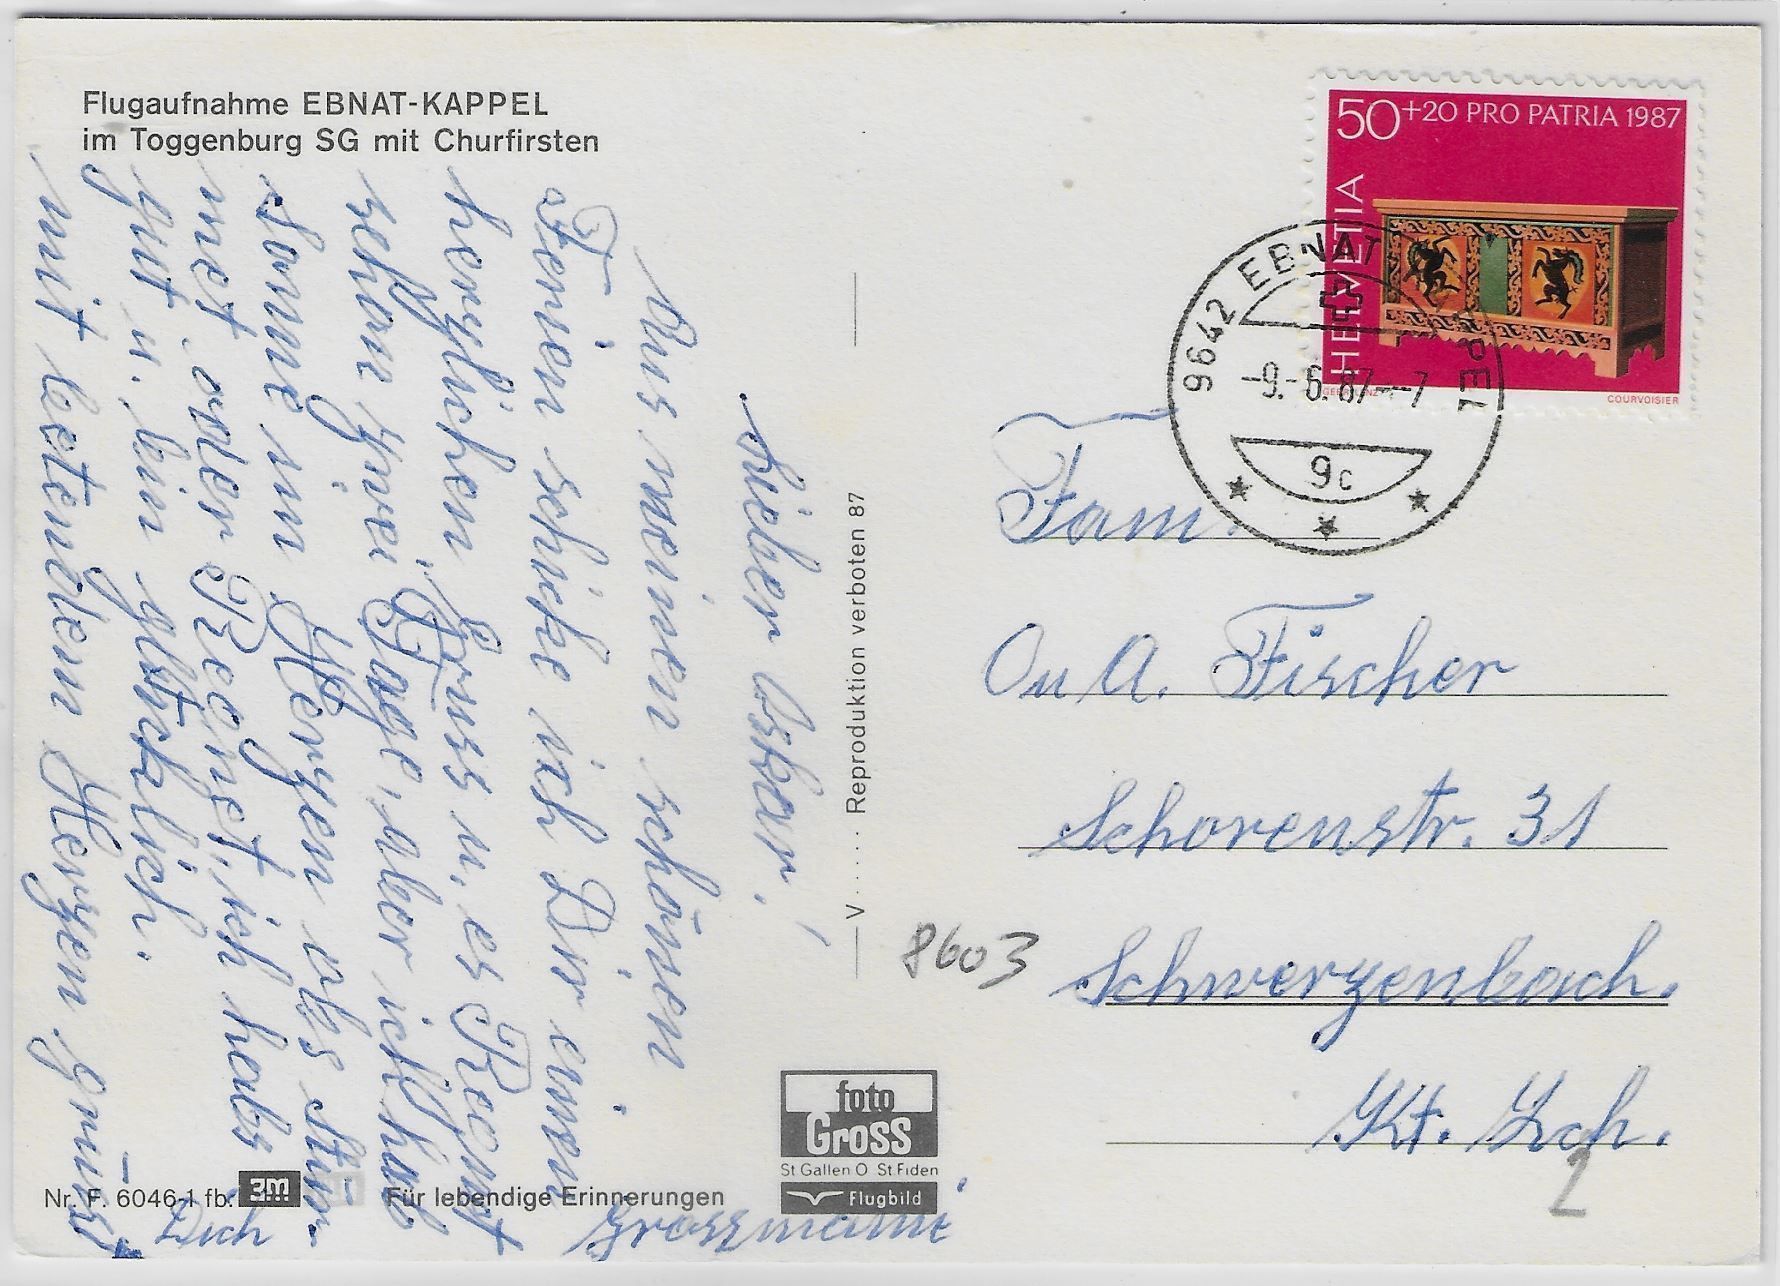 Flugaufnahme EBNAT-KAPPEL
im Toggenburg SG mit Churfirsten
Lieber Oskar!
Aus meinen schönen
Ferien schicke ich Dir einen
herzlichen Gruss u. es Regnet
schon zwei Tage, aber ich hab
Sonne im Herzen obs stür-
met oder Regnet, ich habs
gut u. bin glücklich.
mit bestendem Herzen grüsst
Dich Grossmami
V ..... Reproduktion verboten 87
50+20 PRO PATRIA 1987
HELVETIA
COURVOISIER
9642 EBNAT-KAPPEL
-9.-6.87--7
9c
Fam.
O u A. Fischer
Schorenstr. 31
8603 Schwerzenbach.
Kt. Zch.
2
foto
Gross
St Gallen O St Fiden
Flugbild
Nr. F. 6046-1 fb. 3m Für lebendige Erinnerungen